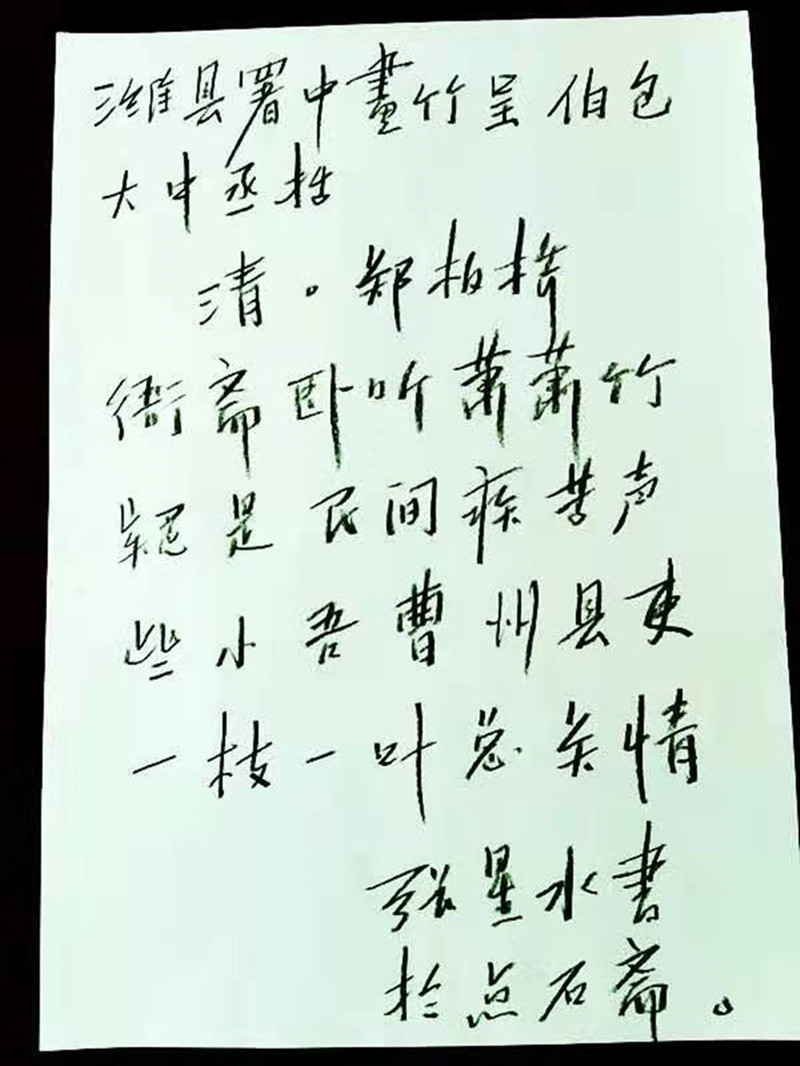 潍县署中畫竹呈伯包
大中丞括
清。郑板桥
衙斋卧听萧萧竹
疑是民间疾苦声
些小吾曹州县吏
一枝一叶总关情
张星水書
於点石斋。